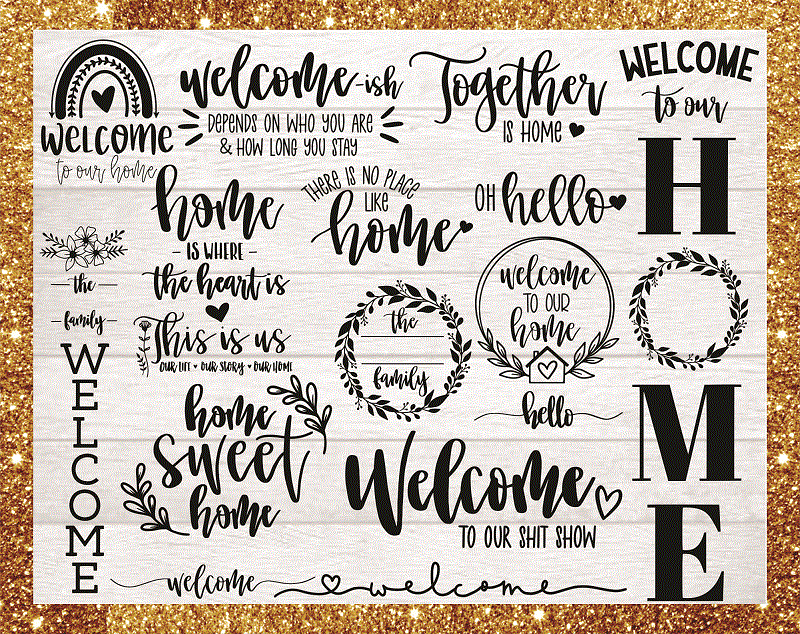 WELCOME
to our home
welcome-ish
DEPENDS ON WHO YOU ARE
& HOW LONG YOU STAY
Together
IS HOME
WELCOME
to our
H
M
E
home
- IS WHERE -
the heart is
THERE IS NO PLACE
LIKE
home
OH hello
the
family
WELCOME
This is us
OUR LIFE ♥ OUR STORY ♥ OUR HOME
the
family
welcome
TO OUR
home
hello
home
sweet
home
Welcome
TO OUR SHIT SHOW
welcome
welcome